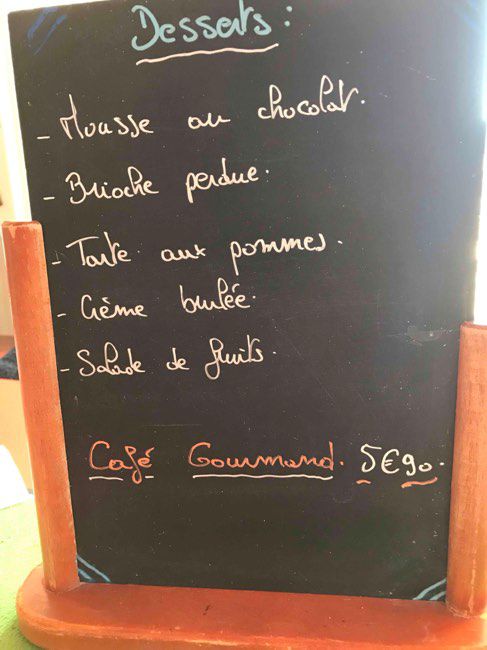 Desserts :
- Mousse au chocolat.
- Brioche perdue.
- Tarte aux pommes.
- Crème brulée.
- Salade de fruits.
Café Gourmand. 5€90.